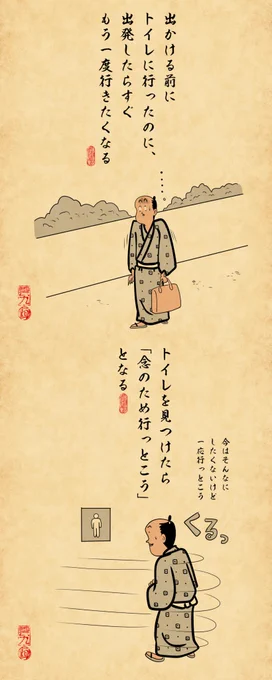 出かける前に
トイレに行ったのに、
出発したらすぐ
もう一度行きたくなる
・・・・
トイレを見つけたら
「念のため行っとこう」
となる
今はそんなに
したくないけど
一応行っとこう
くるっ